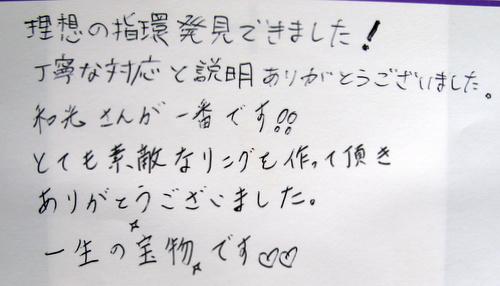 理想の指環発見できました!
丁寧な対応と説明ありがとうございました。
和光さんが一番です!!
とても素敵なリングを作って頂き
ありがとうございました。
一生の☆宝物☆です♡♡